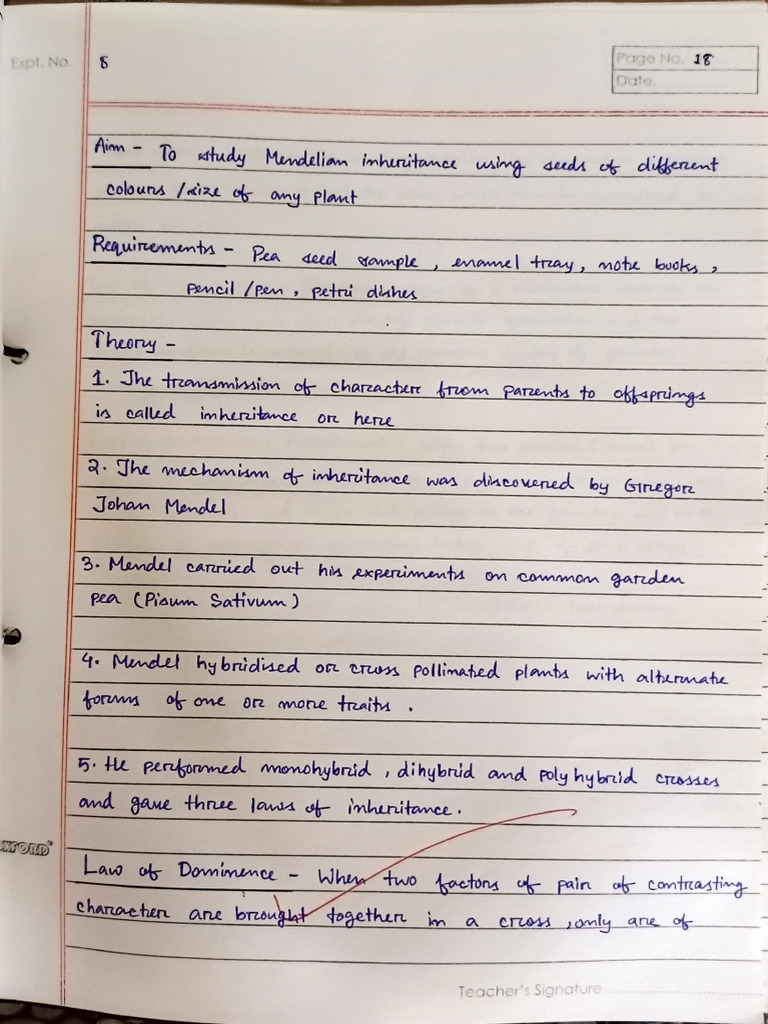 Expt. No. 8
Page No. 18
Date.
Aim - To study Mendelian inheritance using seeds of different
colours /size of any plant
Requirements - Pea seed sample, enamel tray, note books,
pencil /pen, petri dishes
Theory -
1. The transmission of character from parents to offsprings
is called inheritance or here
2. The mechanism of inheritance was discovered by Gregor
Johan Mendel
3. Mendel carried out his experiments on common garden
pea (Pisum Sativum)
4. Mendel hybridised or cross pollinated plants with alternate
forms of one or more traits.
5. He performed monohybrid, dihybrid and poly hybrid crosses
and gave three laws of inheritance.
OXFORD
Law of Dominence - When two factors of pair of contrasting
character are brought together in a cross, only are of
Teacher's Signature